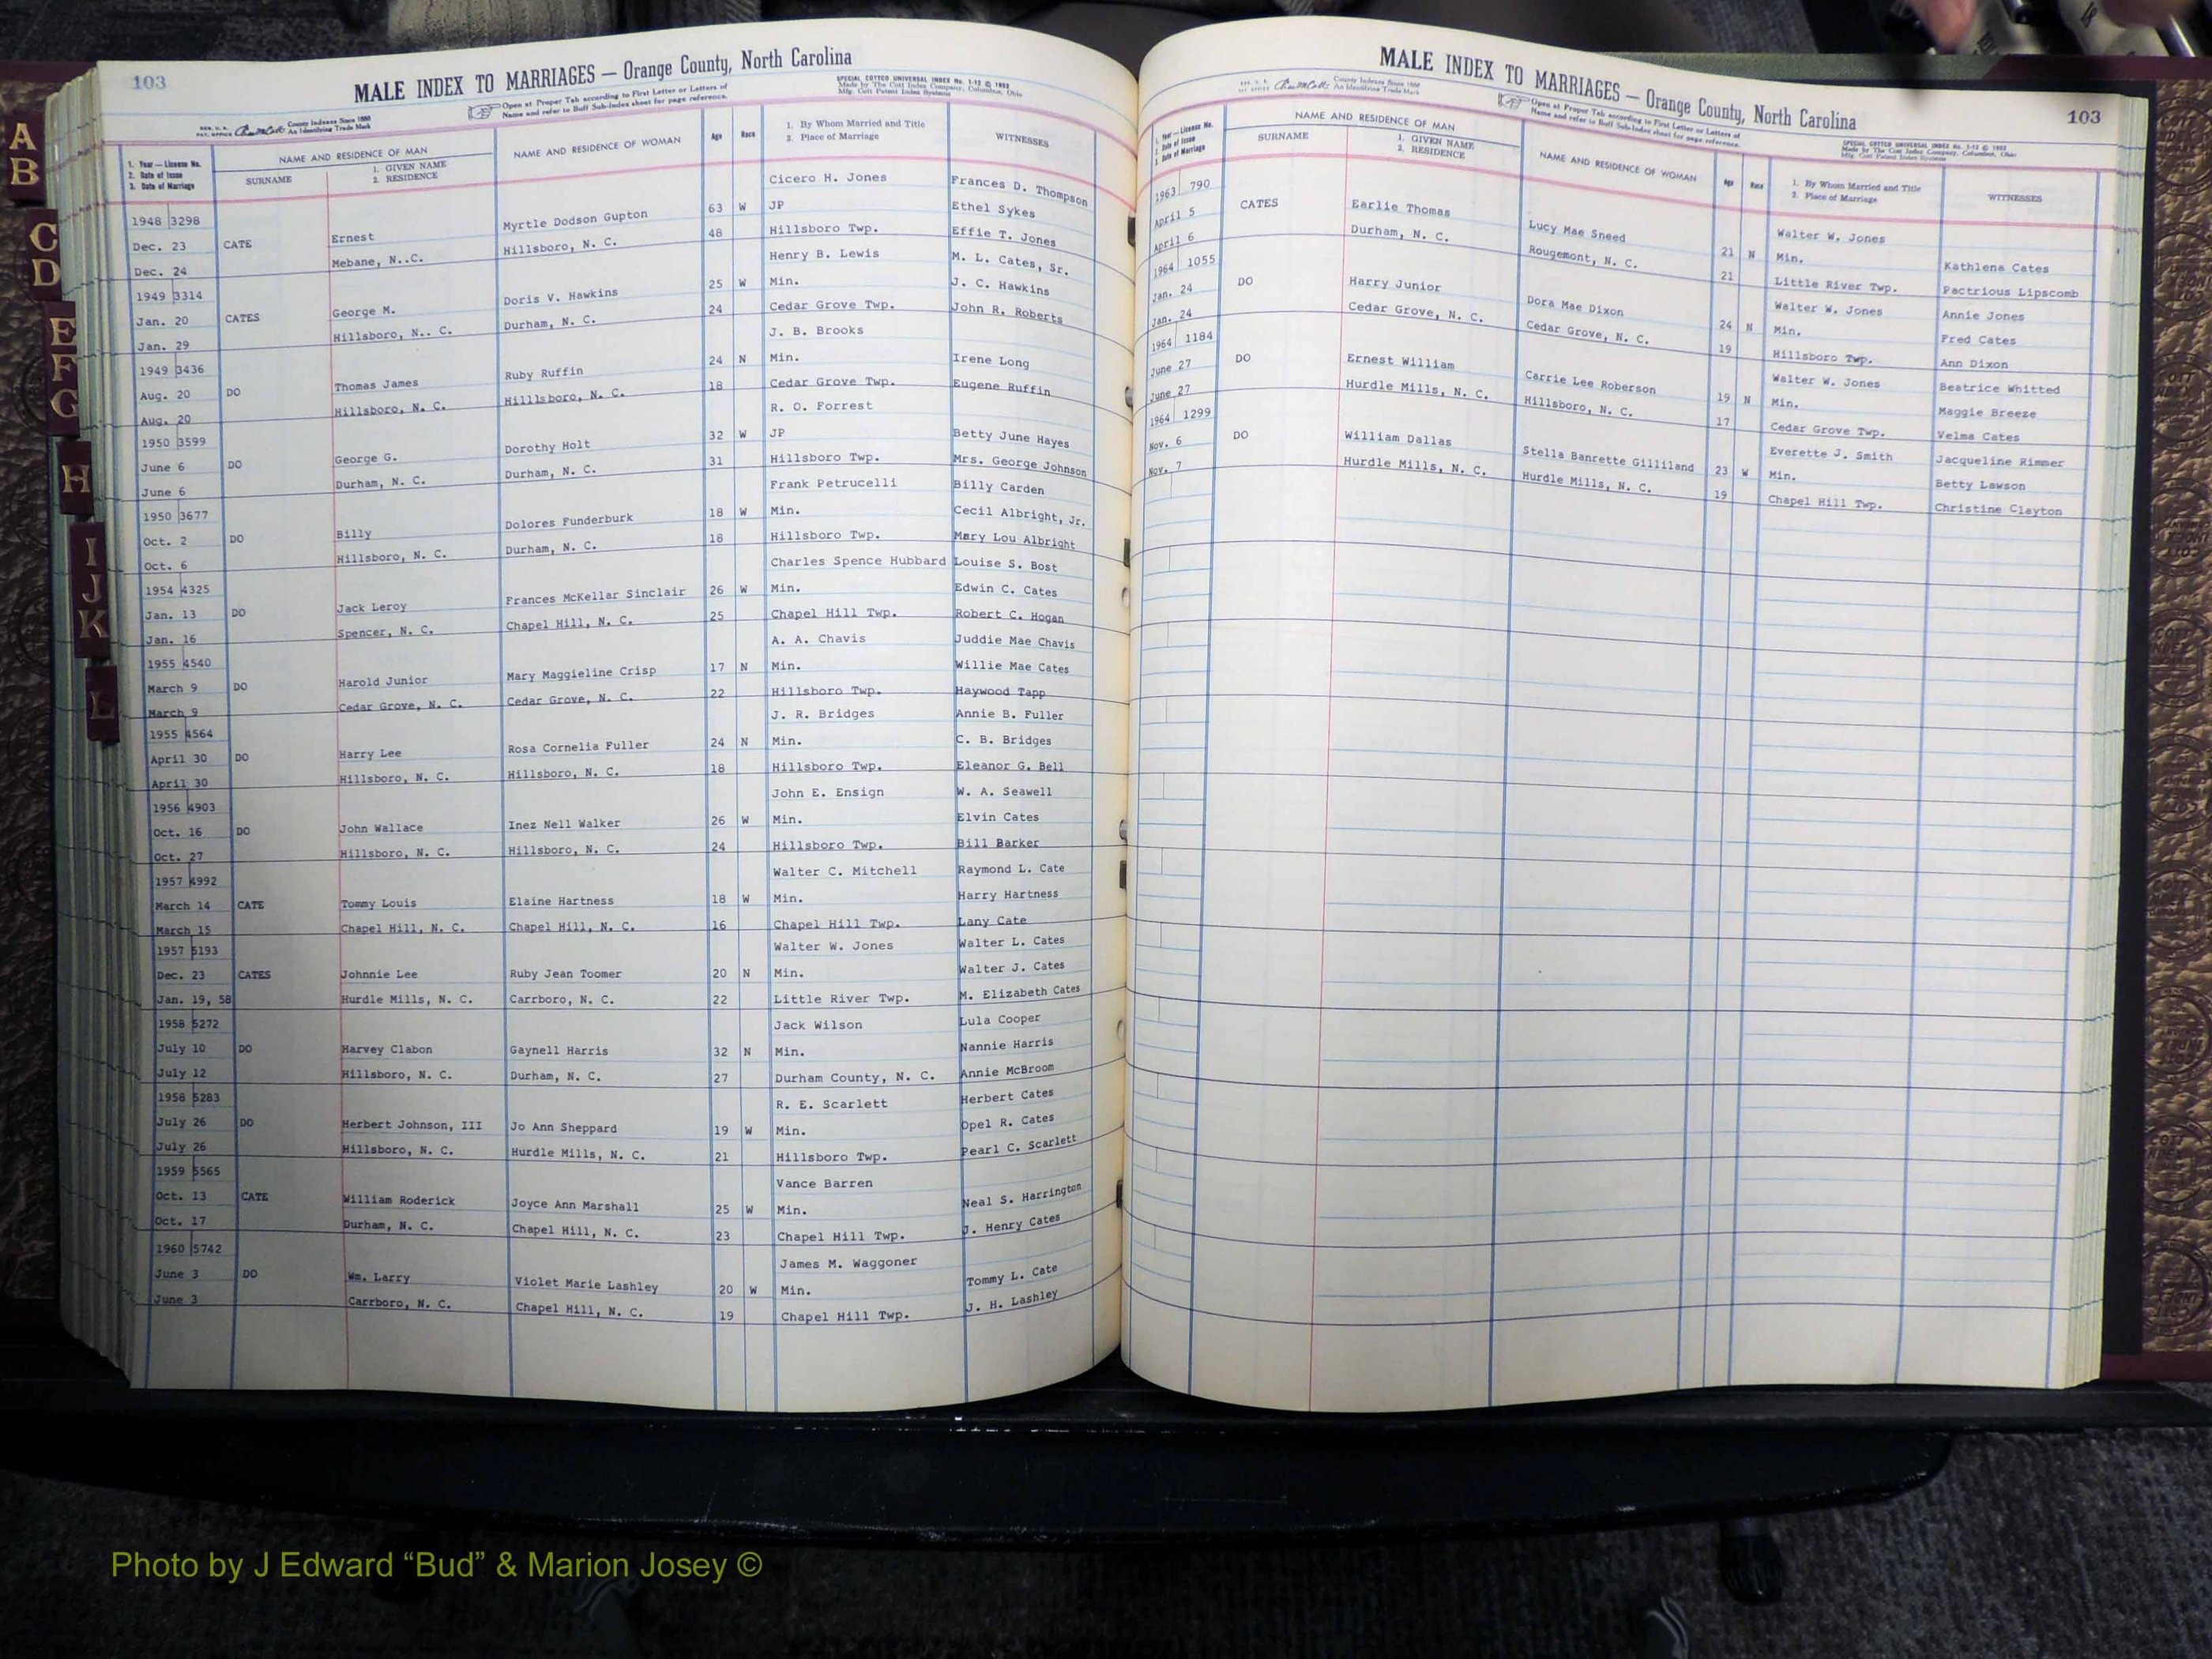 A
B
C
D
E
F
G
H
I
J
K
L
103
MALE INDEX TO MARRIAGES — Orange County, North Carolina
Open at Proper Tab according to First Letter or Letters of
Name and refer to Buff Sub-Index sheet for page reference.
SPECIAL COTTCO UNIVERSAL INDEX No. 1-12 © 1953
Made by The Cott Index Company, Columbus, Ohio
Mfg. Cott Patent Index Systems
County Indexes Since 1888
An Identifying Trade Mark
1. Year — License No.
2. Date of Issue
3. Date of Marriage
NAME AND RESIDENCE OF MAN
SURNAME
1. GIVEN NAME
2. RESIDENCE
NAME AND RESIDENCE OF WOMAN
Age
Race
1. By Whom Married and Title
2. Place of Marriage
WITNESSES
Cicero H. Jones Frances D. Thompson
1948 3298 Myrtle Dodson Gupton 63 W JP Ethel Sykes
Dec. 23 CATE Ernest Hillsboro, N. C. 48 Hillsboro Twp. Effie T. Jones
Dec. 24 Mebane, N..C.
Henry B. Lewis M. L. Cates, Sr.
1949 3314 Doris V. Hawkins 25 W Min. J. C. Hawkins
Jan. 20 CATES George M. Durham, N. C. 24 Cedar Grove Twp. John R. Roberts
Jan. 29 Hillsboro, N.. C.
J. B. Brooks
1949 3436 Ruby Ruffin 24 N Min. Irene Long
Aug. 20 DO Thomas James Hilllsboro, N. C. 18 Cedar Grove Twp. Eugene Ruffin
Aug. 20 Hillsboro, N. C.
R. O. Forrest
1950 3599 Dorothy Holt 32 W JP Betty June Hayes
June 6 DO George G. Durham, N. C. 31 Hillsboro Twp. Mrs. George Johnson
June 6 Durham, N. C.
Frank Petrucelli Billy Carden
1950 3677 Dolores Funderburk 18 W Min. Cecil Albright, Jr.
Oct. 2 DO Billy Durham, N. C. 18 Hillsboro Twp. Mary Lou Albright
Oct. 6 Hillsboro, N. C.
Charles Spence Hubbard Louise S. Bost
1954 4325 Frances McKellar Sinclair 26 W Min. Edwin C. Cates
Jan. 13 DO Jack Leroy Chapel Hill, N. C. 25 Chapel Hill Twp. Robert C. Hogan
Jan. 16 Spencer, N. C.
A. A. Chavis Juddie Mae Chavis
1955 4540 Mary Maggieline Crisp 17 N Min. Willie Mae Cates
March 9 DO Harold Junior Cedar Grove, N. C. 22 Hillsboro Twp. Haywood Tapp
March 9 Cedar Grove, N. C.
J. R. Bridges Annie B. Fuller
1955 4564 Rosa Cornelia Fuller 24 N Min. C. B. Bridges
April 30 DO Harry Lee Hillsboro, N. C. 18 Hillsboro Twp. Eleanor G. Bell
April 30 Hillsboro, N. C.
John E. Ensign W. A. Seawell
1956 4903 Inez Nell Walker 26 W Min. Elvin Cates
Oct. 16 DO John Wallace Hillsboro, N. C. 24 Hillsboro Twp. Bill Barker
Oct. 27 Hillsboro, N. C.
Walter C. Mitchell Raymond L. Cate
1957 4992 Harry Hartness
March 14 CATE Tommy Louis Elaine Hartness 18 W Min.
March 15 Chapel Hill, N. C. Chapel Hill, N. C. 16 Chapel Hill Twp. Lany Cate
1957 5193 Walter W. Jones Walter L. Cates
Dec. 23 CATES Johnnie Lee Ruby Jean Toomer 20 N Min. Walter J. Cates
Jan. 19, 58 Hurdle Mills, N. C. Carrboro, N. C. 22 Little River Twp. M. Elizabeth Cates
1958 5272 Jack Wilson Lula Cooper
July 10 DO Harvey Clabon Gaynell Harris 32 N Min. Nannie Harris
July 12 Hillsboro, N. C. Durham, N. C. 27 Durham County, N. C. Annie McBroom
1958 5283 R. E. Scarlett Herbert Cates
July 26 DO Herbert Johnson, III Jo Ann Sheppard 19 W Min. Opel R. Cates
July 26 Hillsboro, N. C. Hurdle Mills, N. C. 21 Hillsboro Twp. Pearl C. Scarlett
1959 5565 Vance Barren
Oct. 13 CATE William Roderick Joyce Ann Marshall 25 W Min. Neal S. Harrington
Oct. 17 Durham, N. C. Chapel Hill, N. C. 23 Chapel Hill Twp. J. Henry Cates
1960 5742 James M. Waggoner
June 3 DO Wm. Larry Violet Marie Lashley 20 W Min. Tommy L. Cate
June 3 Carrboro, N. C. Chapel Hill, N. C. 19 Chapel Hill Twp. J. H. Lashley
MALE INDEX TO MARRIAGES — Orange County, North Carolina
103
County Indexes Since 1888
An Identifying Trade Mark
Open at Proper Tab according to First Letter or Letters of
Name and refer to Buff Sub-Index sheet for page reference.
SPECIAL COTTCO UNIVERSAL INDEX No. 1-12 © 1953
Made by The Cott Index Company, Columbus, Ohio
Mfg. Cott Patent Index Systems
1. Year — License No.
2. Date of Issue
3. Date of Marriage
NAME AND RESIDENCE OF MAN
SURNAME
1. GIVEN NAME
2. RESIDENCE
NAME AND RESIDENCE OF WOMAN
Age
Race
1. By Whom Married and Title
2. Place of Marriage
WITNESSES
1963 790 Walter W. Jones
April 5 CATES Earlie Thomas Lucy Mae Sneed 21 N Min. Kathlena Cates
April 6 Durham, N. C. Rougemont, N. C. 21 Little River Twp. Pactrious Lipscomb
1964 1055 Walter W. Jones Annie Jones
Jan. 24 DO Harry Junior Dora Mae Dixon 24 N Min. Fred Cates
Jan. 24 Cedar Grove, N. C. Cedar Grove, N. C. 19 Hillsboro Twp. Ann Dixon
1964 1184 Walter W. Jones Beatrice Whitted
June 27 DO Ernest William Carrie Lee Roberson 19 N Min. Maggie Breeze
June 27 Hurdle Mills, N. C. Hillsboro, N. C. 17 Cedar Grove Twp. Velma Cates
1964 1299 Everette J. Smith Jacqueline Rimmer
Nov. 6 DO William Dallas Stella Banrette Gilliland 23 W Min. Betty Lawson
Nov. 7 Hurdle Mills, N. C. Hurdle Mills, N. C. 19 Chapel Hill Twp. Christine Clayton
Photo by J Edward “Bud” & Marion Josey ©